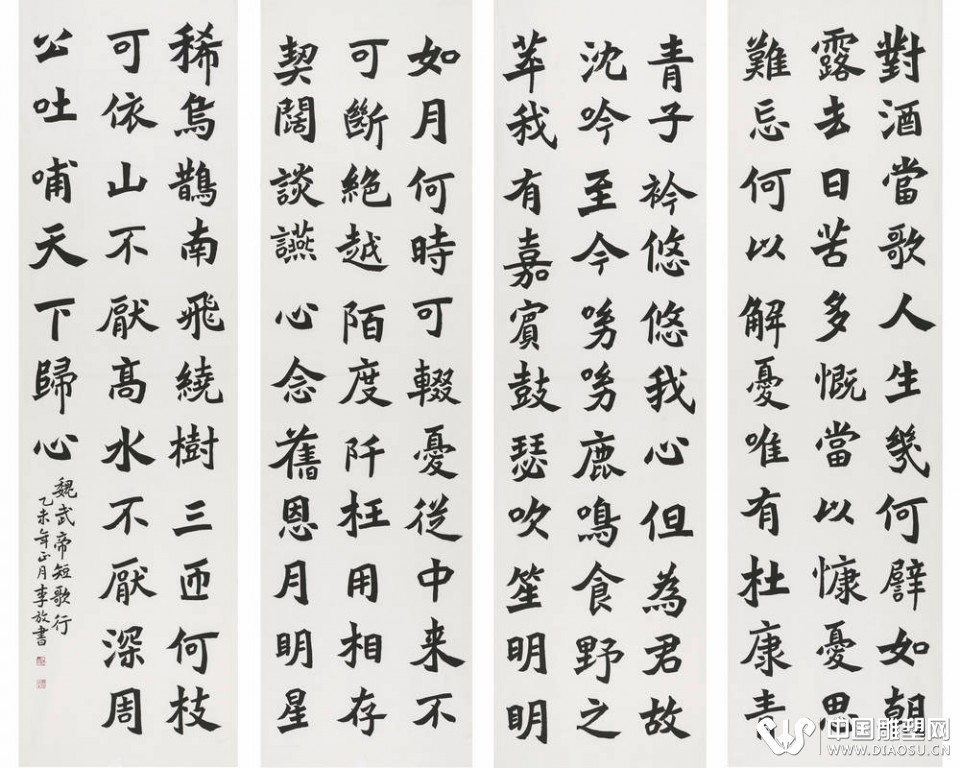 對酒當歌人生幾何譬如朝
露去日苦多慨當以慷憂思
難忘何以解憂唯有杜康青
青子衿悠悠我心但為君故
沈吟至今呦呦鹿鳴食野之
苹我有嘉賓鼓瑟吹笙明明
如月何時可輟憂從中来不
可斷絕越陌度阡枉用相存
契闊談讌心念舊恩月明星
稀烏鵲南飛繞樹三匝何枝
可依山不厭高水不厭深周
公吐哺天下歸心
魏武帝短歌行
乙未年正月李放書
中国雕塑网
WWW.DIAOSU.CN